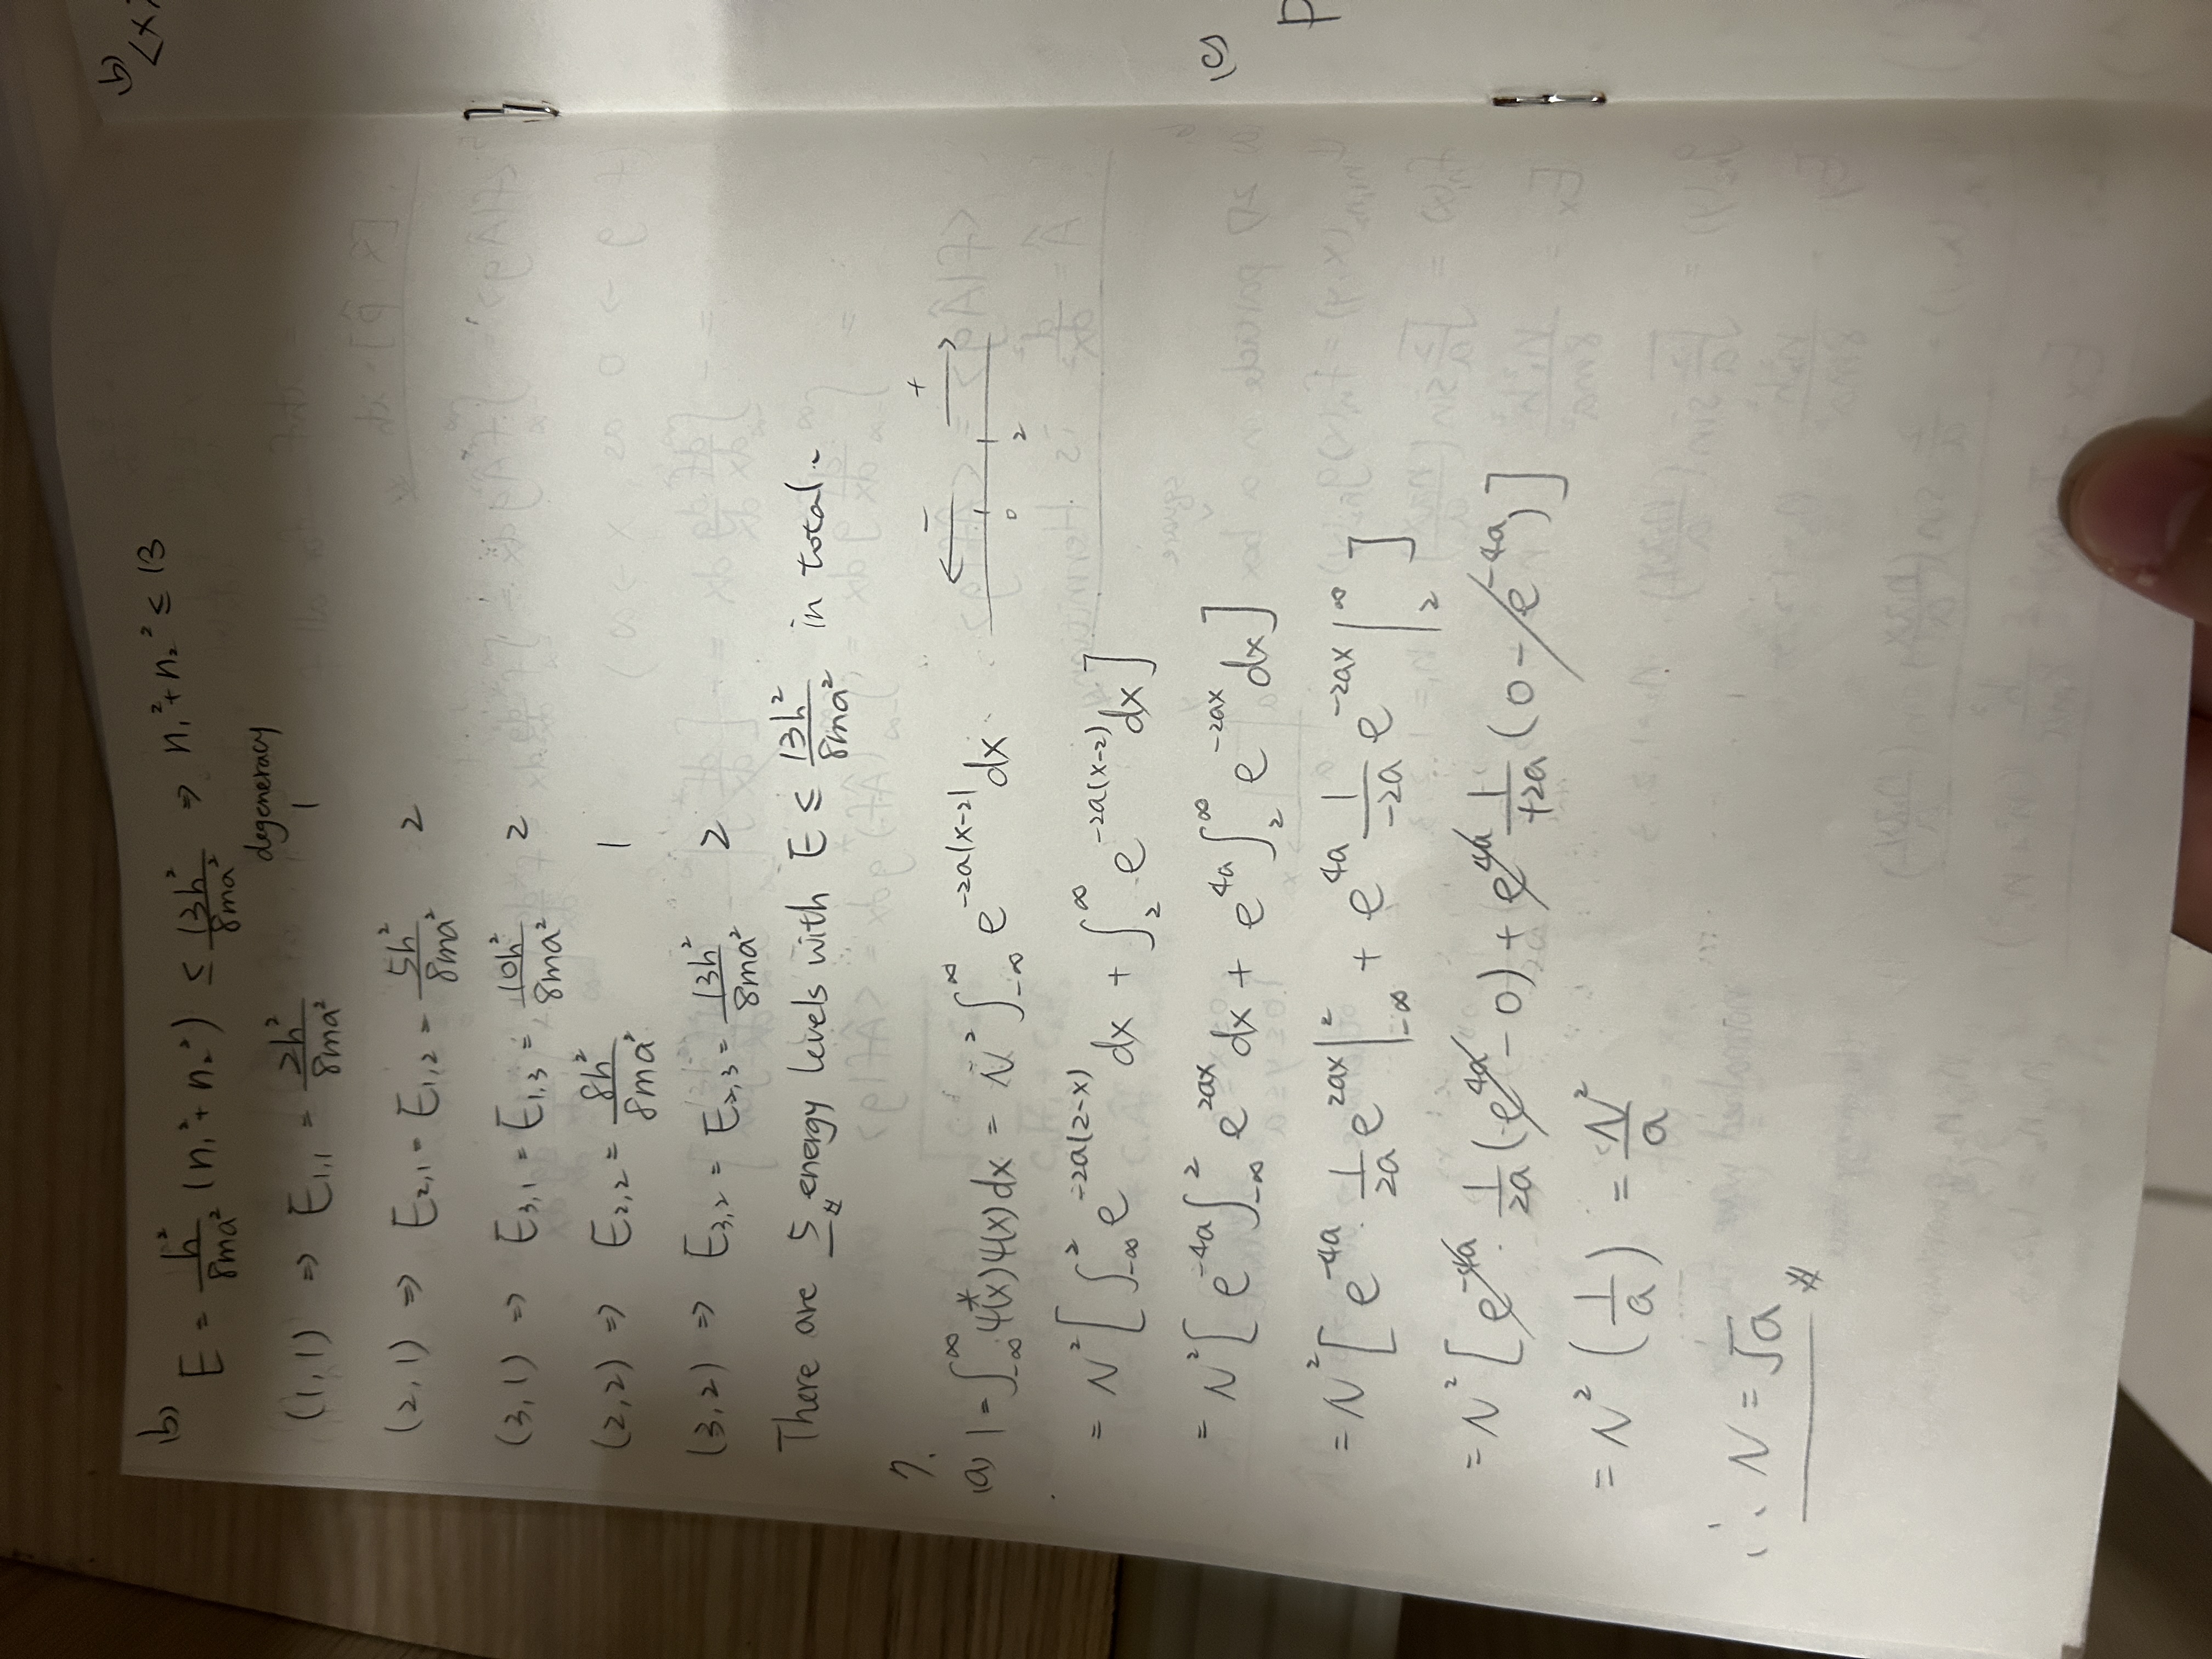 (b) E = h²/8ma² (n₁² + n₂²) ≤ 13h²/8ma² ⇒ n₁² + n₂² ≤ 13
degeneracy
(1,1) ⇒ E₁,₁ = 2h²/8ma² 1
(2,1) ⇒ E₂,₁ = E₁,₂ = 5h²/8ma² 2
(3,1) ⇒ E₃,₁ = E₁,₃ = 10h²/8ma² 2
(2,2) ⇒ E₂,₂ = 8h²/8ma² 1
(3,2) ⇒ E₃,₂ = E₂,₃ = 13h²/8ma² 2
There are 5 # energy levels with E ≤ 13h²/8ma² in total.
7.
(a) 1 = ∫_{-∞}^{∞} ψ*(x) ψ(x) dx = N² ∫_{-∞}^{∞} e^{-2a|x-2|} dx
- +
0 2
= N² [ ∫_{-∞}^{2} e^{-2a(2-x)} dx + ∫_{2}^{∞} e^{-2a(x-2)} dx ]
= N² [ e^{-4a} ∫_{-∞}^{2} e^{2ax} dx + e^{4a} ∫_{2}^{∞} e^{-2ax} dx ]
= N² [ e^{-4a} · 1/2a e^{2ax} |_{-∞}^{2} + e^{4a} 1/-2a e^{-2ax} |_{2}^{∞} ]
= N² [ e^{-4a} · 1/2a (e^{4a} - 0) + e^{4a} 1/+2a (0 - e^{-4a}) ]
= N² (1/a) = N²/a
∴ N = √a #
(b) <x>
(c)
P